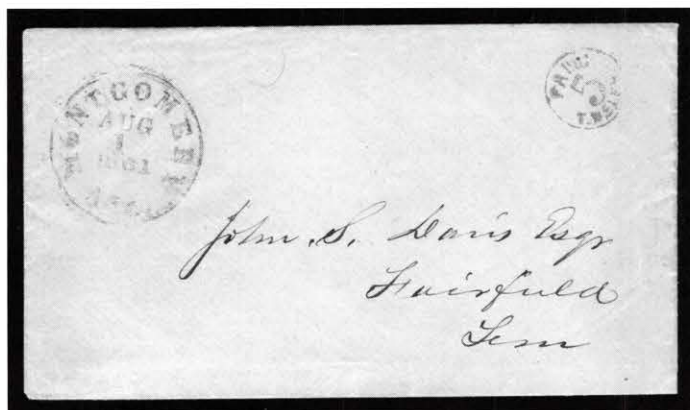 MONTGOMERY
AUG
1
1861
ALA.
PAID
5
T. WELSH
John. S. Davis Esqr
Fairfield
Tenn